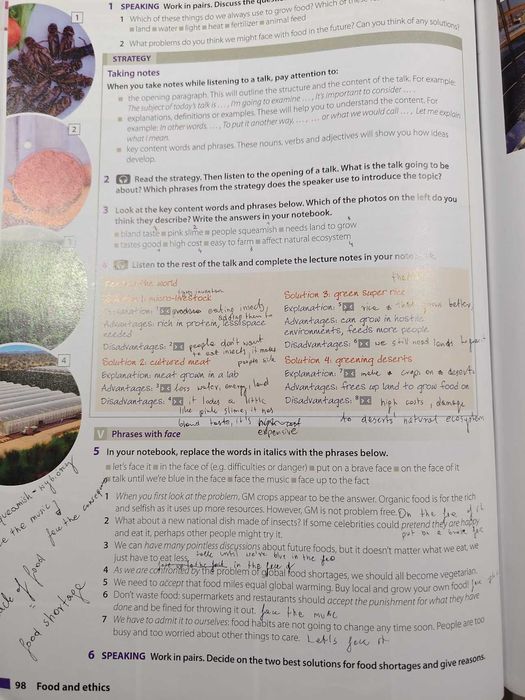 1
1 SPEAKING Work in pairs. Discuss the
1 Which of these things do we always use to grow food? Which of
land water light heat fertilizer animal feed
2 What problems do you think we might face with food in the future? Can you think of any solutions?
STRATEGY
Taking notes
When you take notes while listening to a talk, pay attention to:
the opening paragraph. This will outline the structure and the content of the talk. For example:
The subject of today's talk is ... , I'm going to examine ... , It's important to consider ... .
explanations, definitions or examples. These will help you to understand the content. For
example: In other words, ... , To put it another way, ... , ... or what we would call ... , Let me explain
what I mean.
key content words and phrases. These nouns, verbs and adjectives will show you how ideas
develop.
2
2 Read the strategy. Then listen to the opening of a talk. What is the talk going to be
about? Which phrases from the strategy does the speaker use to introduce the topic?
3 Look at the key content words and phrases below. Which of the photos on the left do you
think they describe? Write the answers in your notebook.
bland taste pink slime people squeamish needs land to grow
tastes good high cost easy to farm affect natural ecosystem
3
4 Listen to the rest of the talk and complete the lecture notes in your
the world
micro-livestock
eating insects,
adding them to
Advantages: rich in protein, less space
needed
Disadvantages: 2 people don't want
to eat insect, it makes
people sick
Solution 2: cultured meat
Explanation: meat grown in a lab
Advantages: 3 less water, energy, land
Disadvantages: 4 it looks a little
like pink slime, it has
bland taste, it's high cost
expensive
Solution 3: green super rice
Explanation: 5 rice
better
Advantages: can grow in hostile
environments, feeds more people
Disadvantages: 6 we still need lands to
Solution 4: greening deserts
Explanation: 7 make crops on deserts
Advantages: frees up land to grow food on
Disadvantages: 8 high costs, damage
to deserts' natural ecosystem
4
V Phrases with face
5 In your notebook, replace the words in italics with the phrases below.
let's face it in the face of (e.g. difficulties or danger) put on a brave face on the face of it
talk until we're blue in the face face the music face up to the fact
1 When you first look at the problem, GM crops appear to be the answer. Organic food is for the rich
and selfish as it uses up more resources. However, GM is not problem free. On the face of it
2 What about a new national dish made of insects? If some celebrities could pretend they are happy
and eat it, perhaps other people might try it. put on a brave face
3 We can have many pointless discussions about future foods, but it doesn't matter what we eat, we
just have to eat less. talk until we're blue in the face
4 As we are confronted by the problem of global food shortages, we should all become vegetarian.
in the face of
5 We need to accept that food miles equal global warming. Buy local and grow your own food!
6 Don't waste food: supermarkets and restaurants should accept the punishment for what they have
done and be fined for throwing it out. face the music
7 We have to admit it to ourselves: food habits are not going to change any time soon. People are too
busy and too worried about other things to care. Let's face it
food shortage
6 SPEAKING Work in pairs. Decide on the two best solutions for food shortages and give reasons.
98 Food and ethics